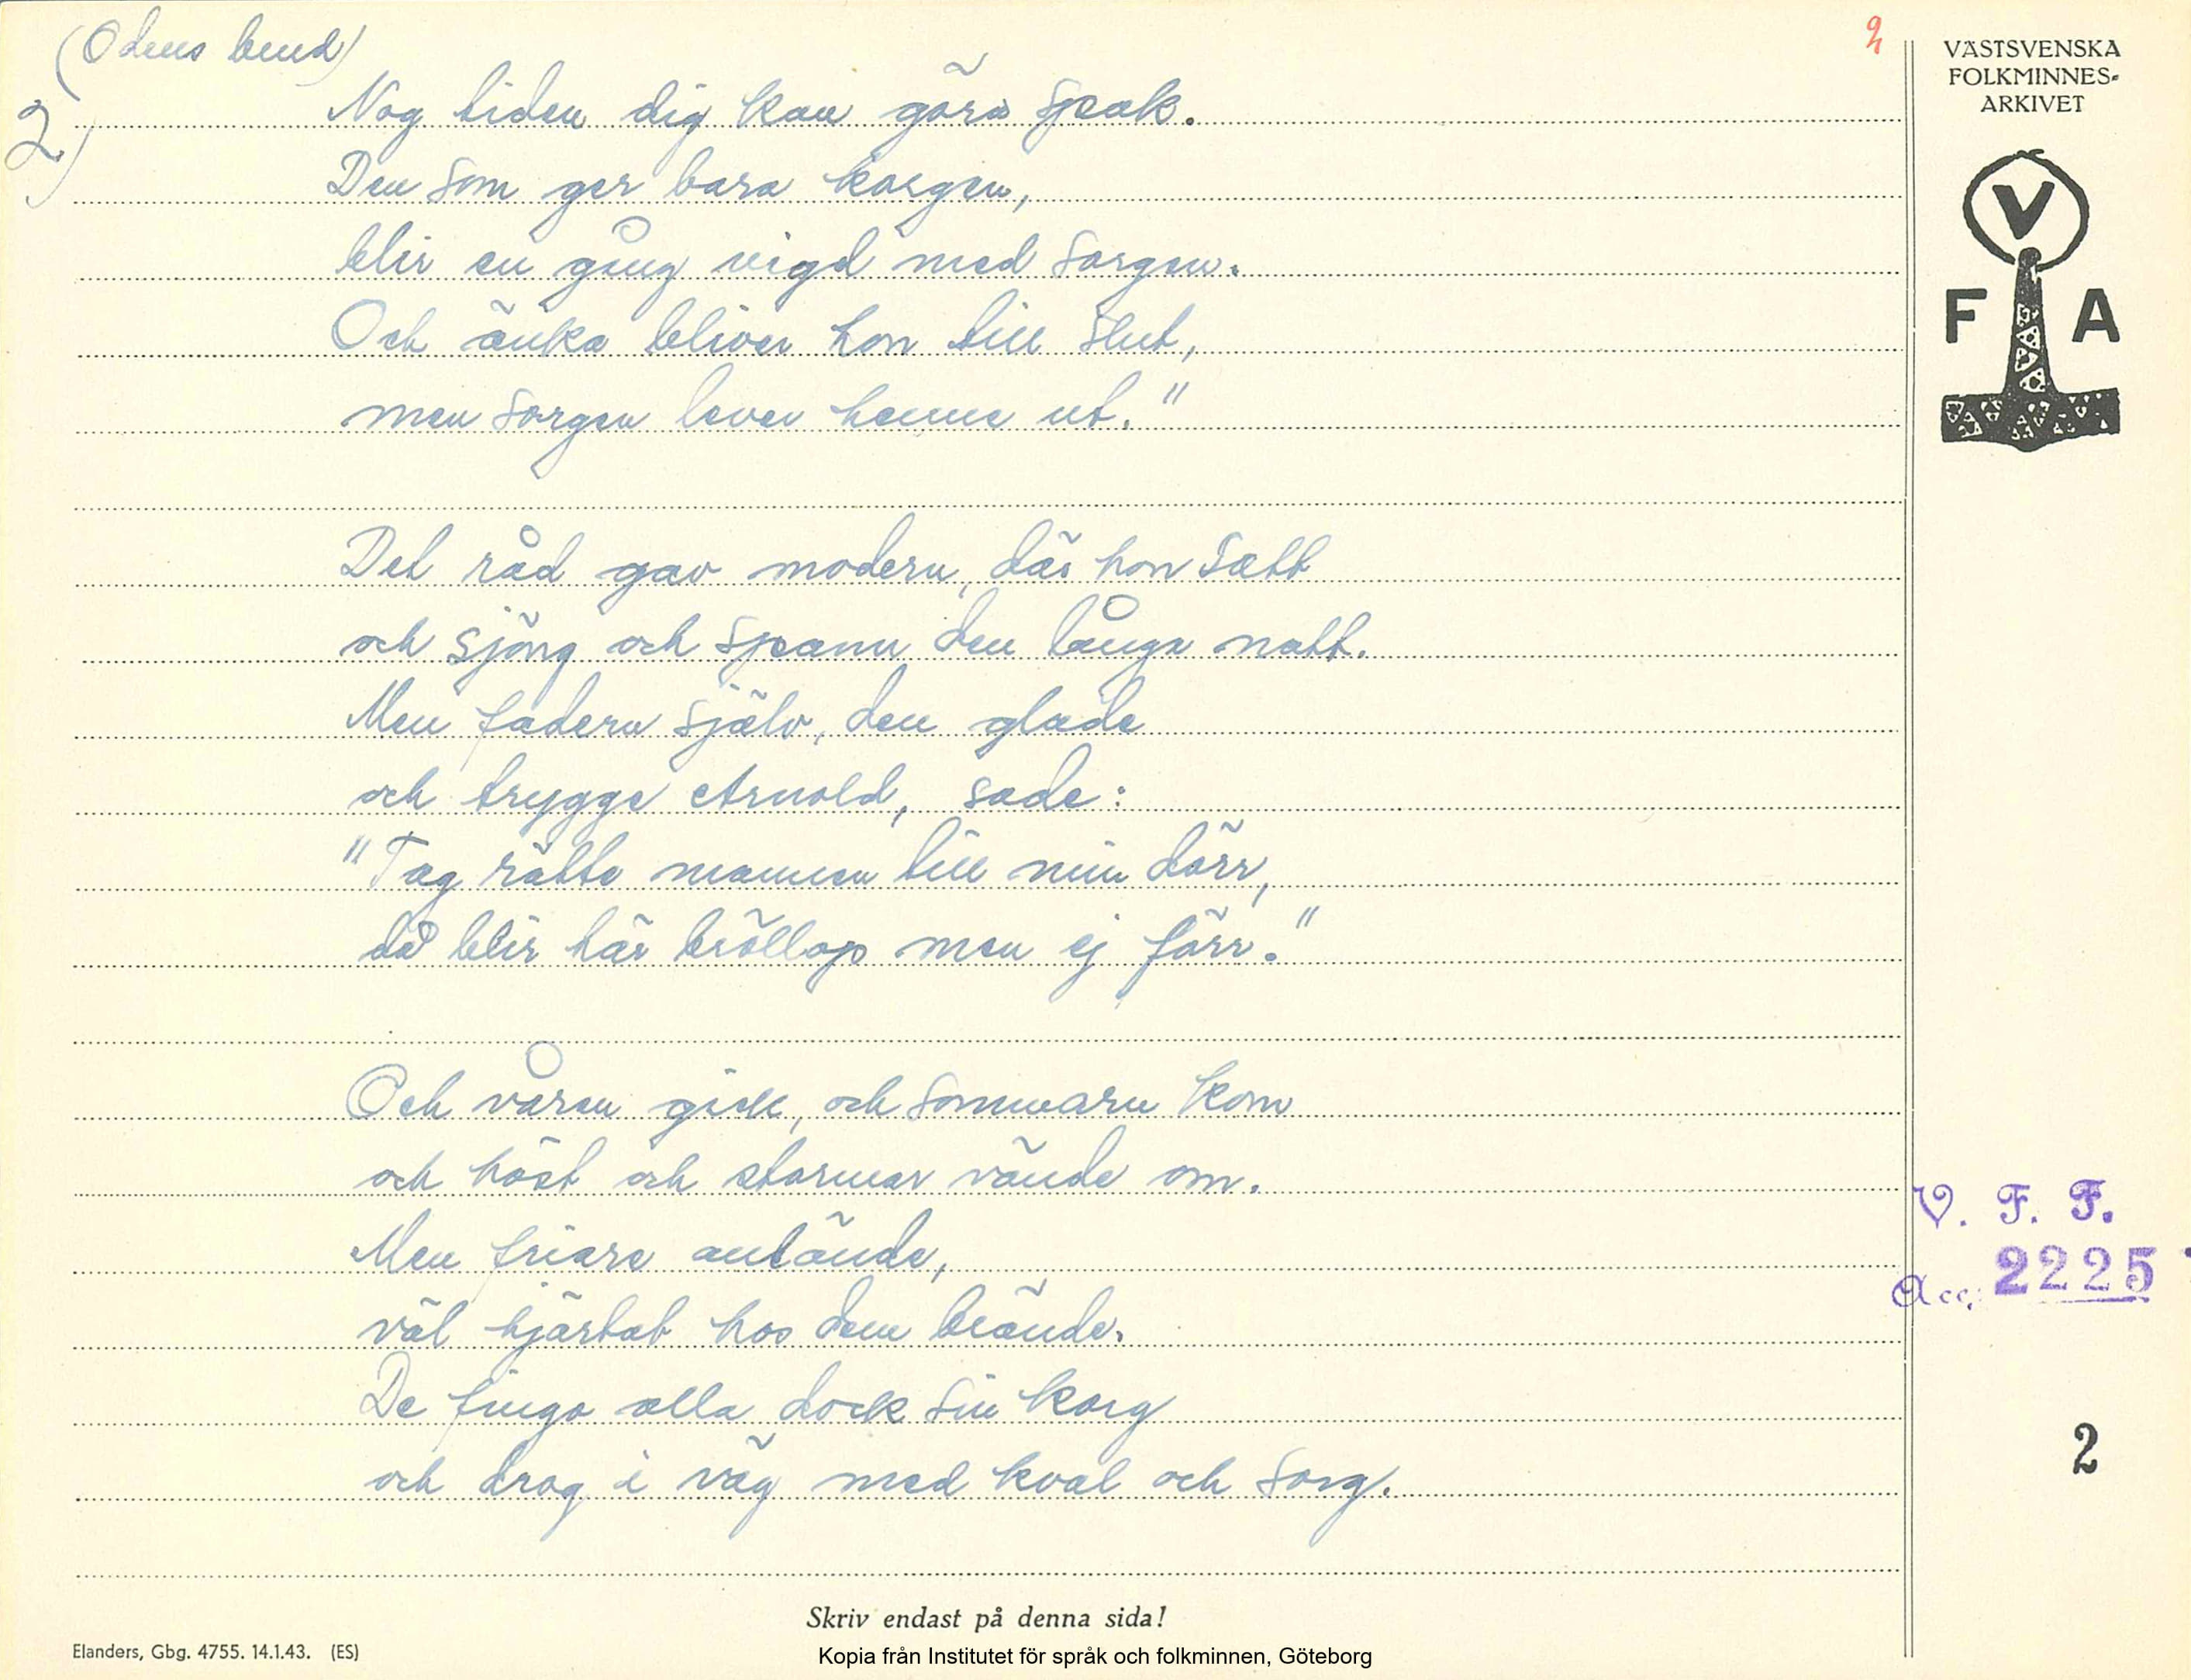 (Odens lund)
2
VÄSTSVENSKA
FOLKMINNES-
ARKIVET
V
F A
2)
Nog tiden dig kan göra spak.
Den som ger bara korgen,
blir en gång vigd med sorgen.
Och änka bliver hon till slut,
men sorgen lever henne ut."
Det råd gav modern, där hon satt
och sjöng och spann den långa natt.
Men fadern själv, den glade
och trygge Arnold, sade:
"Tag rätte mannen till min dörr,
då blir här bröllop men ej förr."
Och våren gick, och sommarn kom
och höst och stormar vände om.
Men friare anlände,
väl hjärtat hos dem brände.
De fingo alla dock sin korg
och drog i väg med kval och sorg.
V. F. F.
Acc. 2225
2
Skriv endast på denna sida!
Elanders, Gbg. 4755. 14.1.43. (ES)
Kopia från Institutet för språk och folkminnen, Göteborg